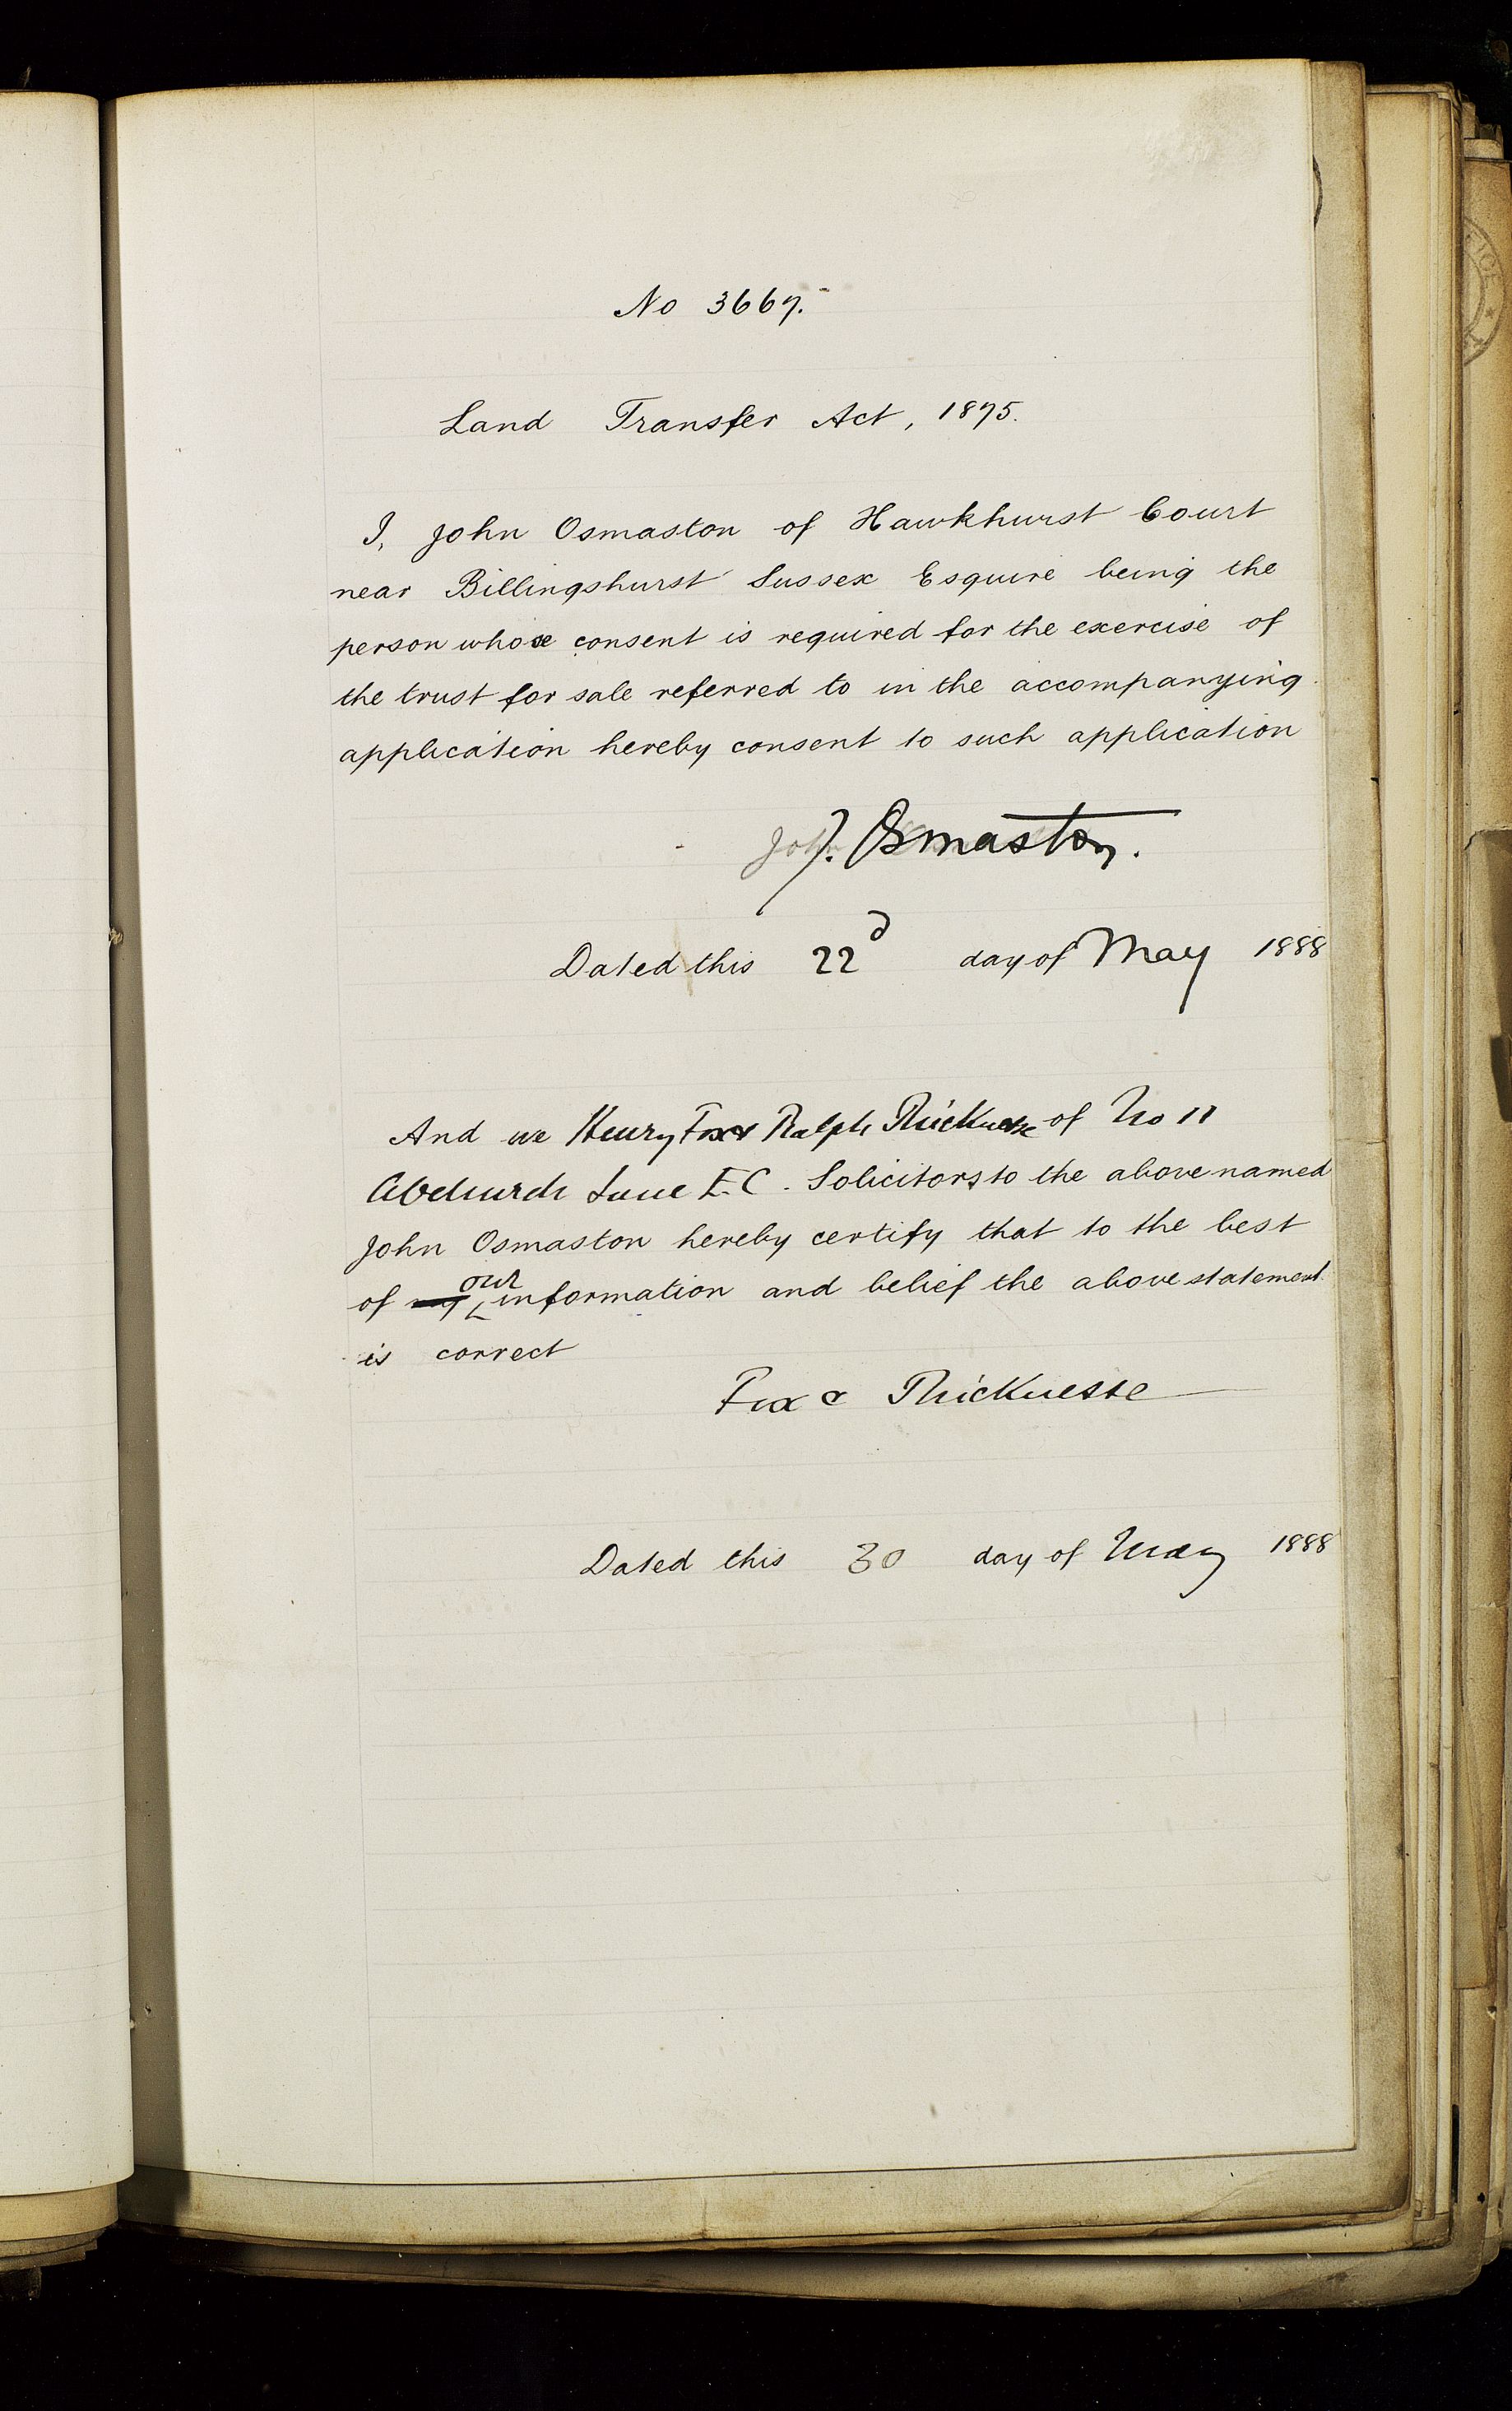 No 3667.
Land Transfer Act, 1875.
I, John Osmaston of Hawkhurst Court
near Billingshurst Sussex Esquire being the
person whose consent is required for the exercise of
the trust for sale referred to in the accompanying
application hereby consent to such application
J. Osmaston.
Dated this 22d day of May 1888
And we Henry Fox & Ralph Thicknesse of No 11
Abchurch Lane E.C. Solicitors to the above named
John Osmaston hereby certify that to the best
of my our information and belief the above statement
is correct
Fox & Thicknesse
Dated this 30 day of May 1888